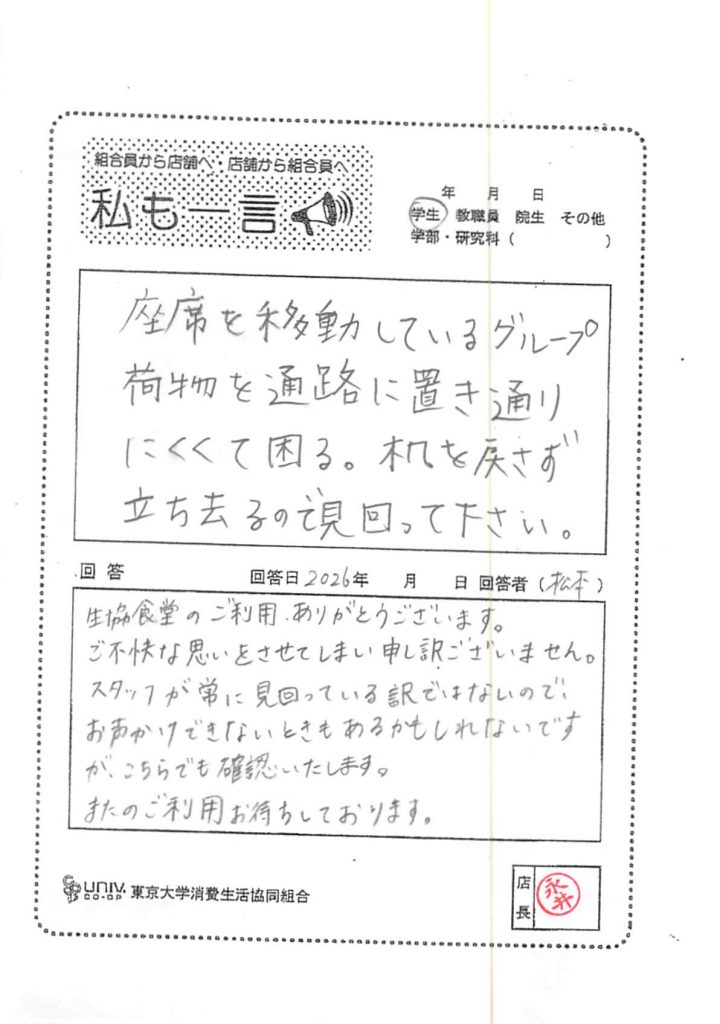 組合員から店舗へ・店舗から組合員へ
私も一言
年 月 日
学生 教職員 院生 その他
学部・研究科（ ）
座席を移動しているグループ
荷物を通路に置き通り
にくくて困る。机を戻さず
立ち去るので見回って下さい。
回答 回答日2026年 月 日 回答者（松本）
生協食堂のご利用、ありがとうございます。
ご不快な思いをさせてしまい申し訳ございません。
スタッフが常に見回っている訳ではないので、
お声かけできないときもあるかもしれないです
が、こちらでも確認いたします。
またのご利用お待ちしております。
UNIV. CO-OP 東京大学消費生活協同組合
店長 永井